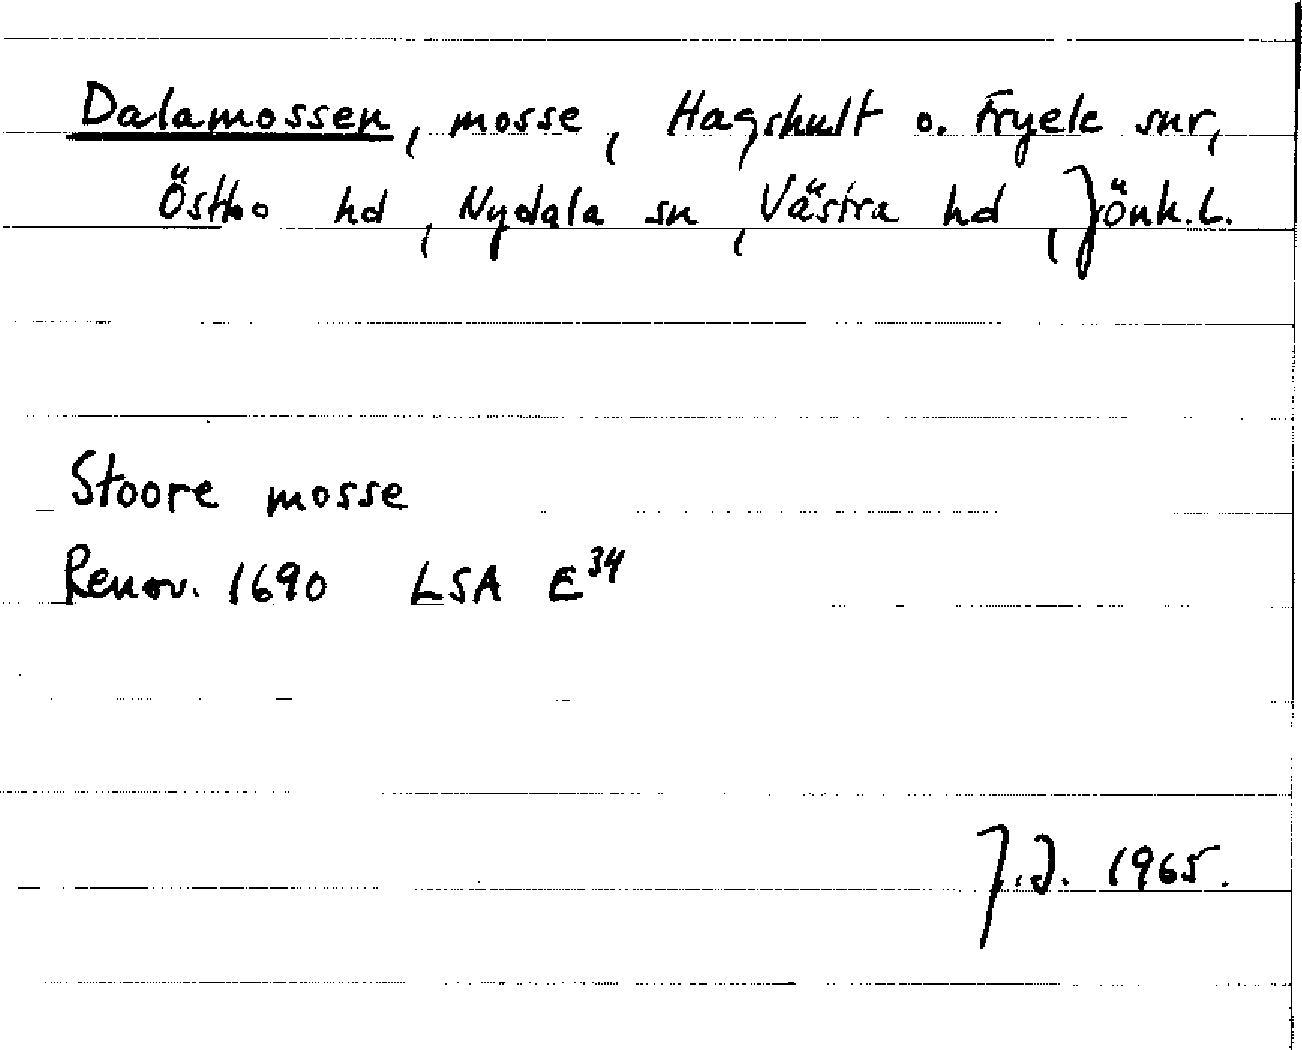 Dalamossen, mosse, Hagshult o. Fryele snr,
Östbo hd, Nydala sn, Västra hd, Jönk.l.
Stoore mosse
Renov. 1690 LSA E³⁴
J.J. 1965.